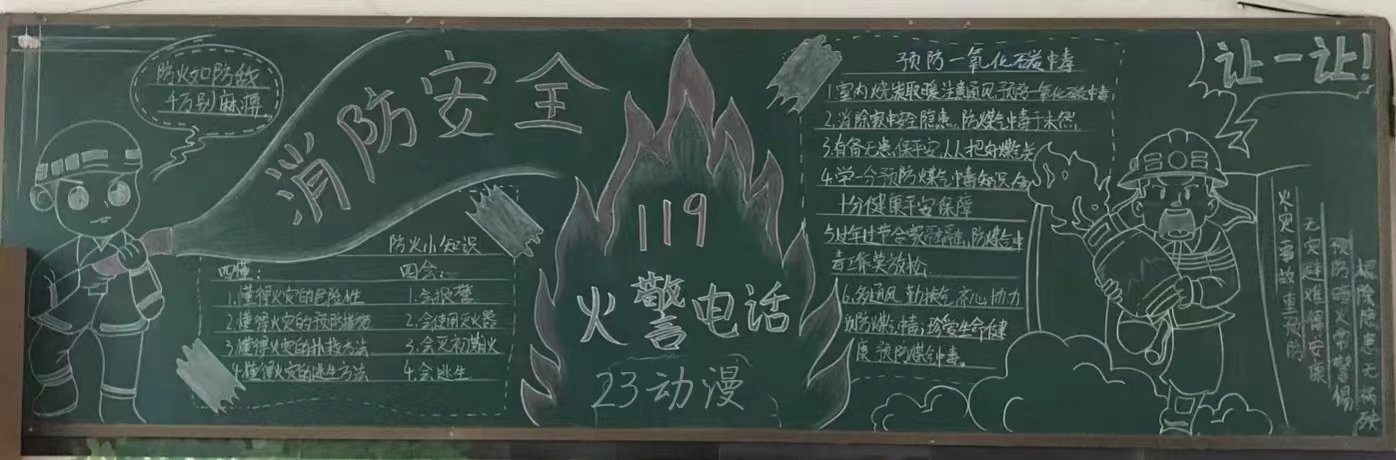 防火如防贼
千万别麻痹
消防安全
防火小知识
四懂：
1.懂得火灾的危险性
2.懂得火灾的预防措施
3.懂得火灾的扑救方法
4.懂得火灾的逃生方法
四会：
1.会报警
2.会使用灭火器
3.会灭初期火
4.会逃生
119
火警电话
23动漫
预防一氧化碳中毒
1.室内烧炭取暖注意通风预防一氧化碳中毒
2.消除家中安全隐患,防煤气中毒于未然
3.有备无患保平安,人人把好燃气关
4.学一分预防煤气中毒知识,
十分健康平安保障
5.过年过节合家融融,防煤气中
毒工作莫放松
6.多通风,勤换气,齐心协力
预防煤气中毒;珍爱生命健
康,预防煤气中毒
让一让!
火灾事故重预防
无灾避难得安康
预防
火常警惕
除隐患无祸殃